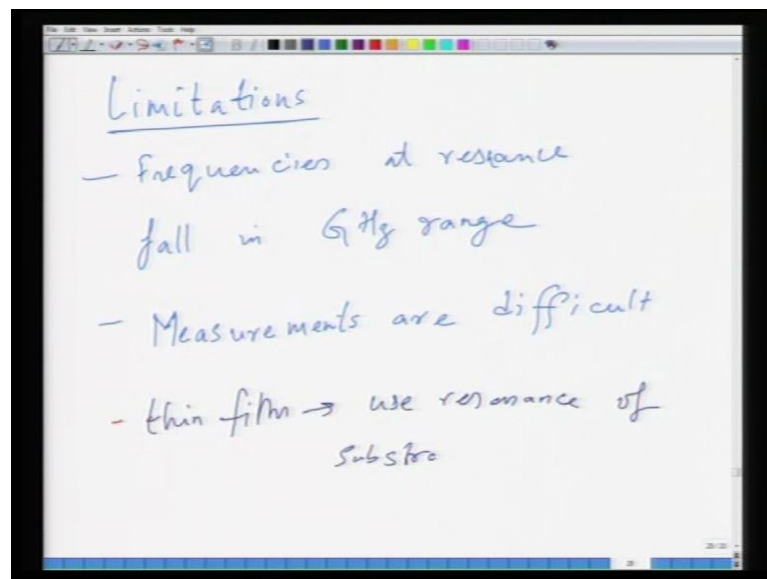 File Edit View Insert Actions Tools Help
Limitations
— Frequencies at resonance
fall in GHz range
— Measurements are difficult
- thin film → use resonance of
substra